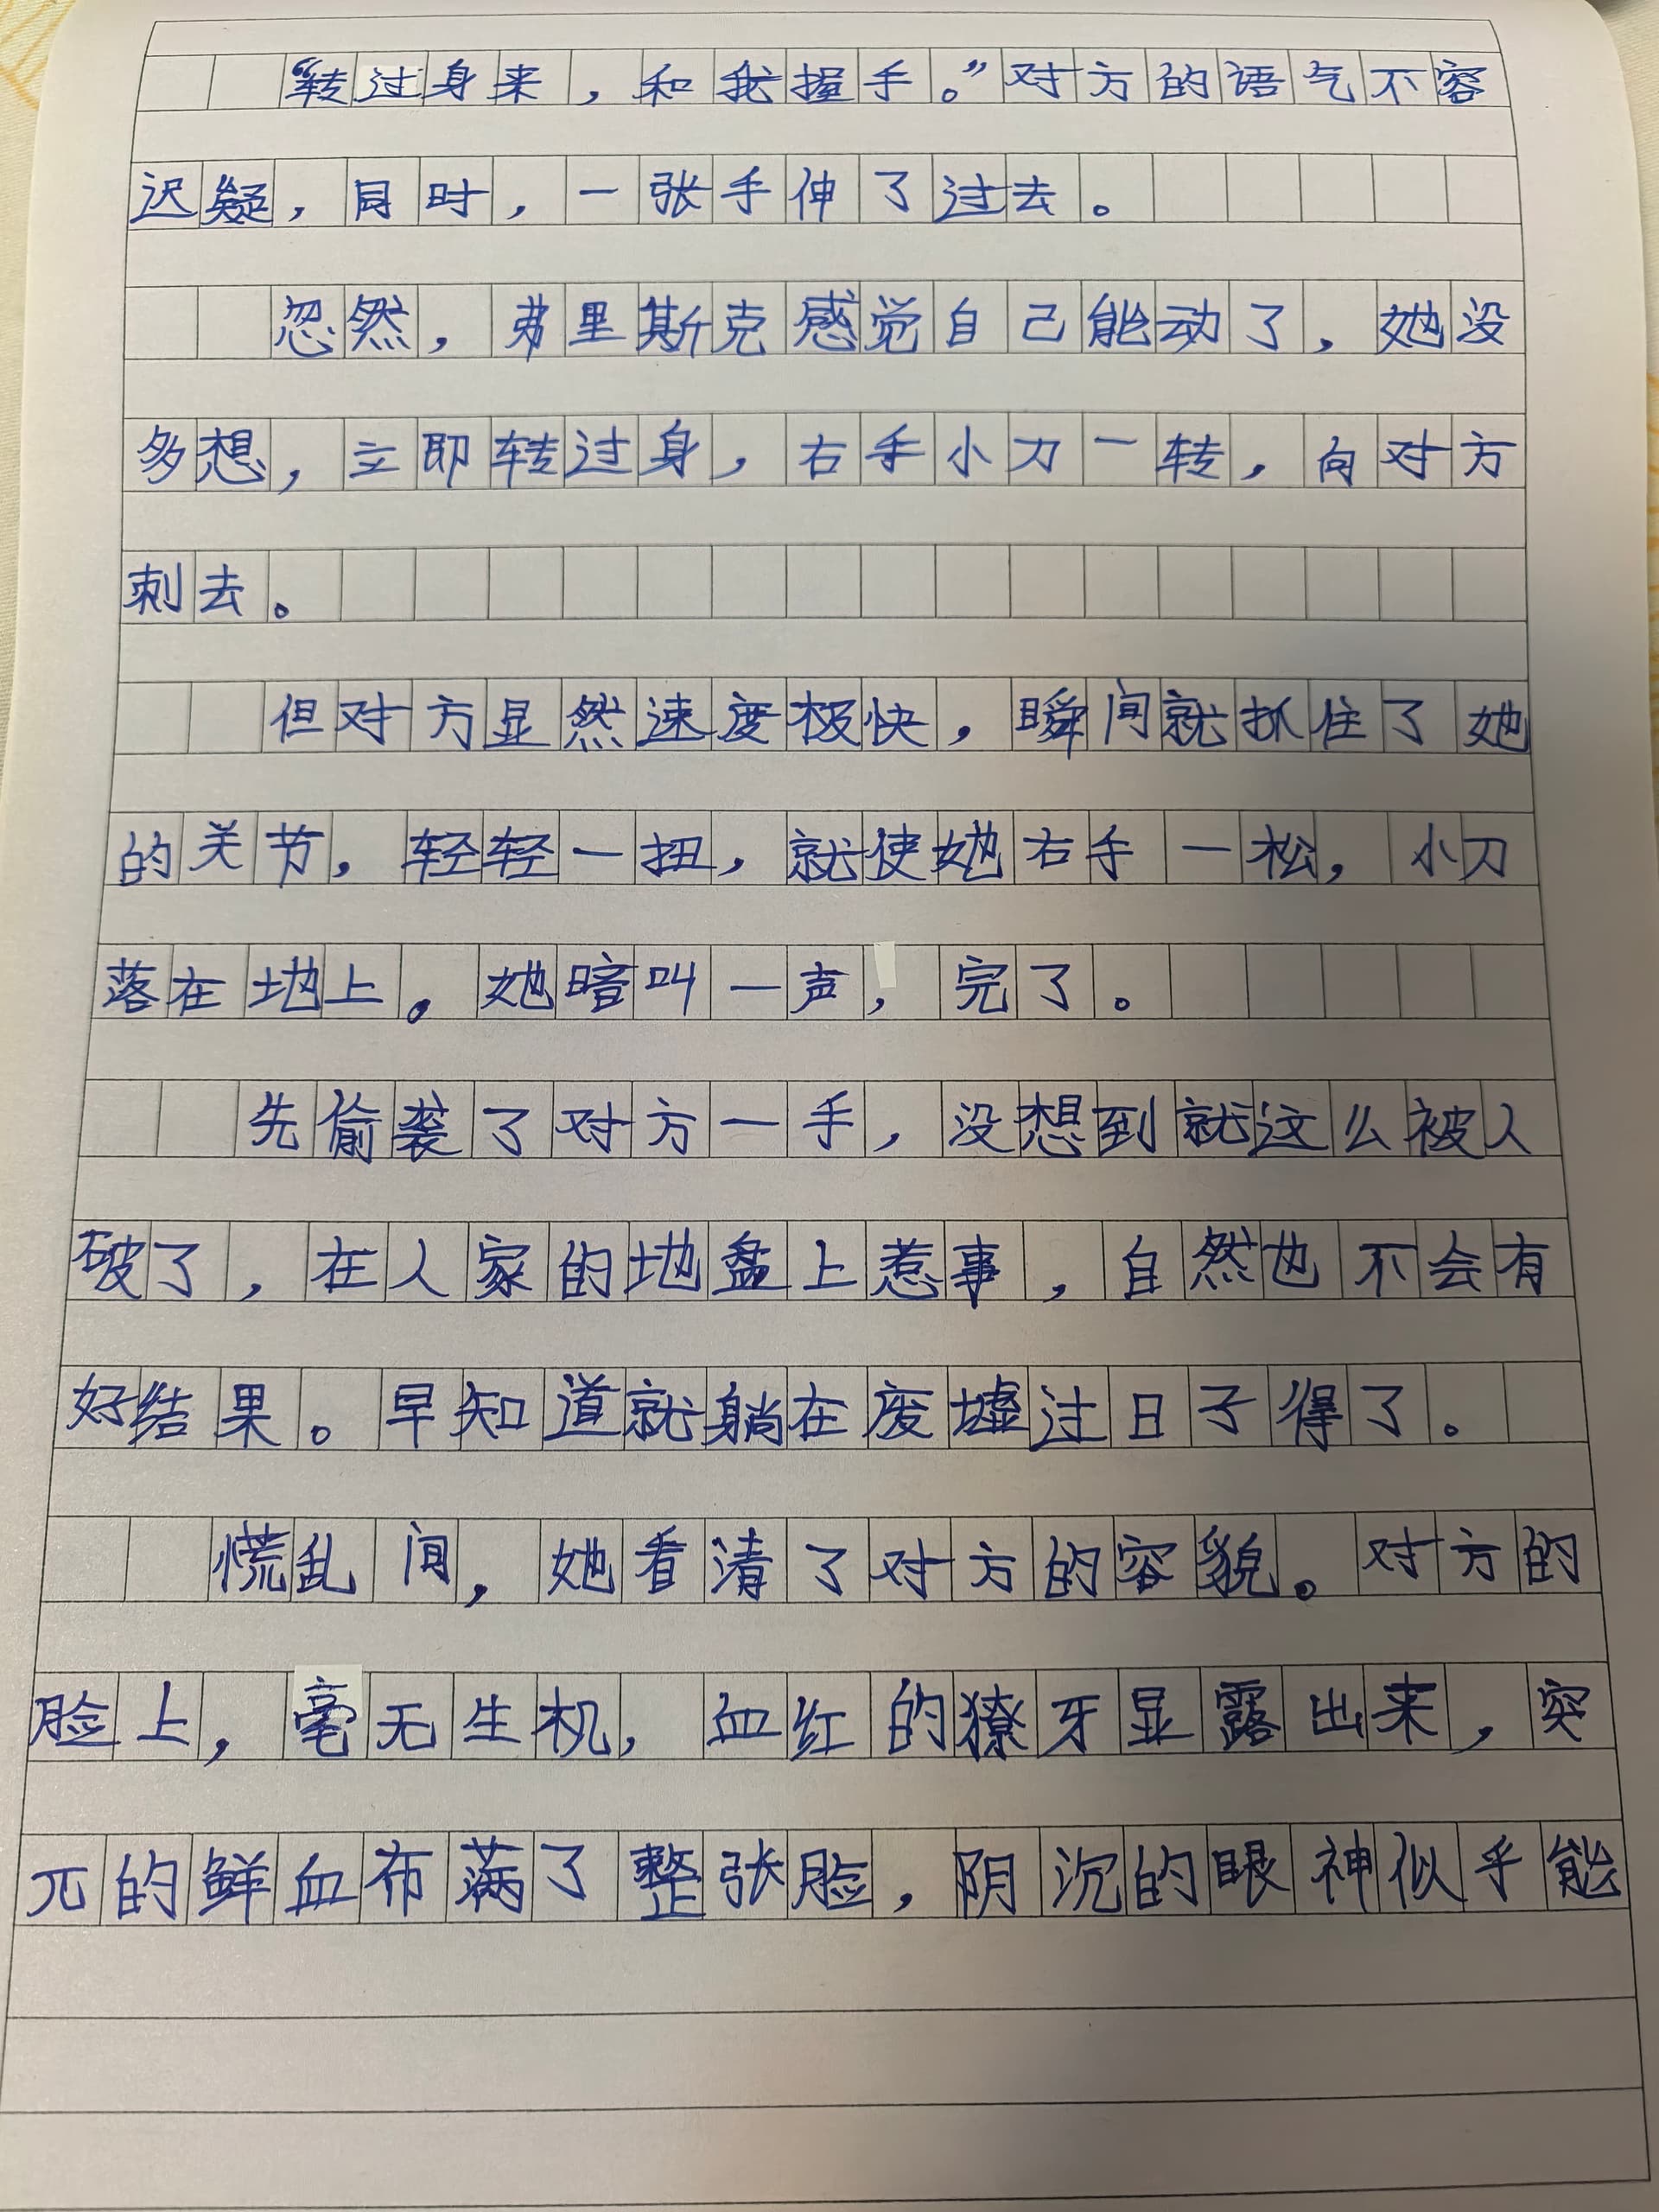 “转过身来，和我握手。”对方的语气不容
迟疑，同时，一张手伸了过去。
忽然，弗里斯克感觉自己能动了，她没
多想，立即转过身，右手小刀一转，向对方
刺去。
但对方显然速度极快，瞬间就抓住了她
的关节，轻轻一扭，就使她右手一松，小刀
落在地上。她暗叫一声，完了。
先偷袭了对方一手，没想到就这么被人
破了，在人家的地盘上惹事，自然也不会有
好结果。早知道就躺在废墟过日子得了。
慌乱间，她看清了对方的容貌。对方的
脸上，毫无生机，血红的獠牙显露出来，突
兀的鲜血布满了整张脸，阴沉的眼神似乎能